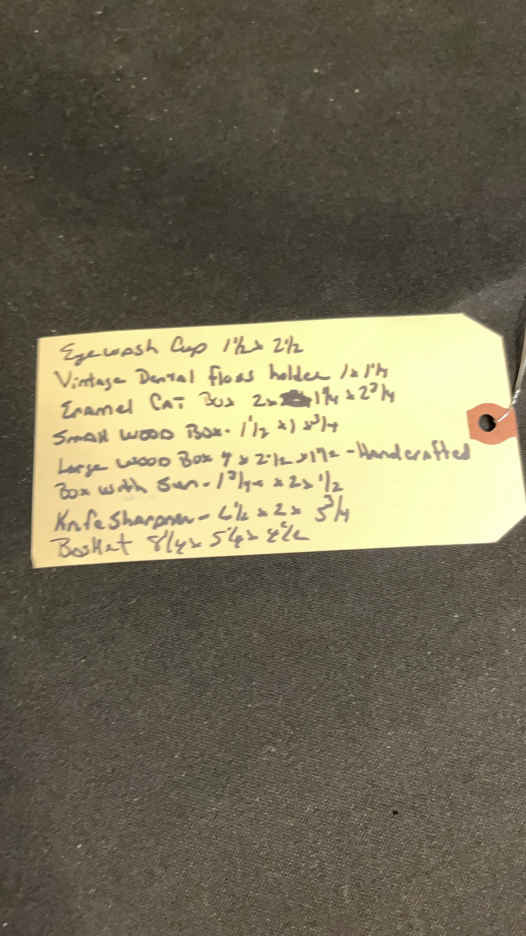 Eyewash Cup 1½ x 2½
Vintage Dental Floss holder 1 x 1¼
Enamel Cat Box 2 x 1¾ x 2¾
Small Wood Box - 1½ x 1 x ¾
Large Wood Box 4 x 2½ x 1½ - Handcrafted
Box with Sun - 1¾ x 2 x ½
Knife Sharpner - 6½ x 2 x 5¾
Basket 8¼ x 5¼ x 4½